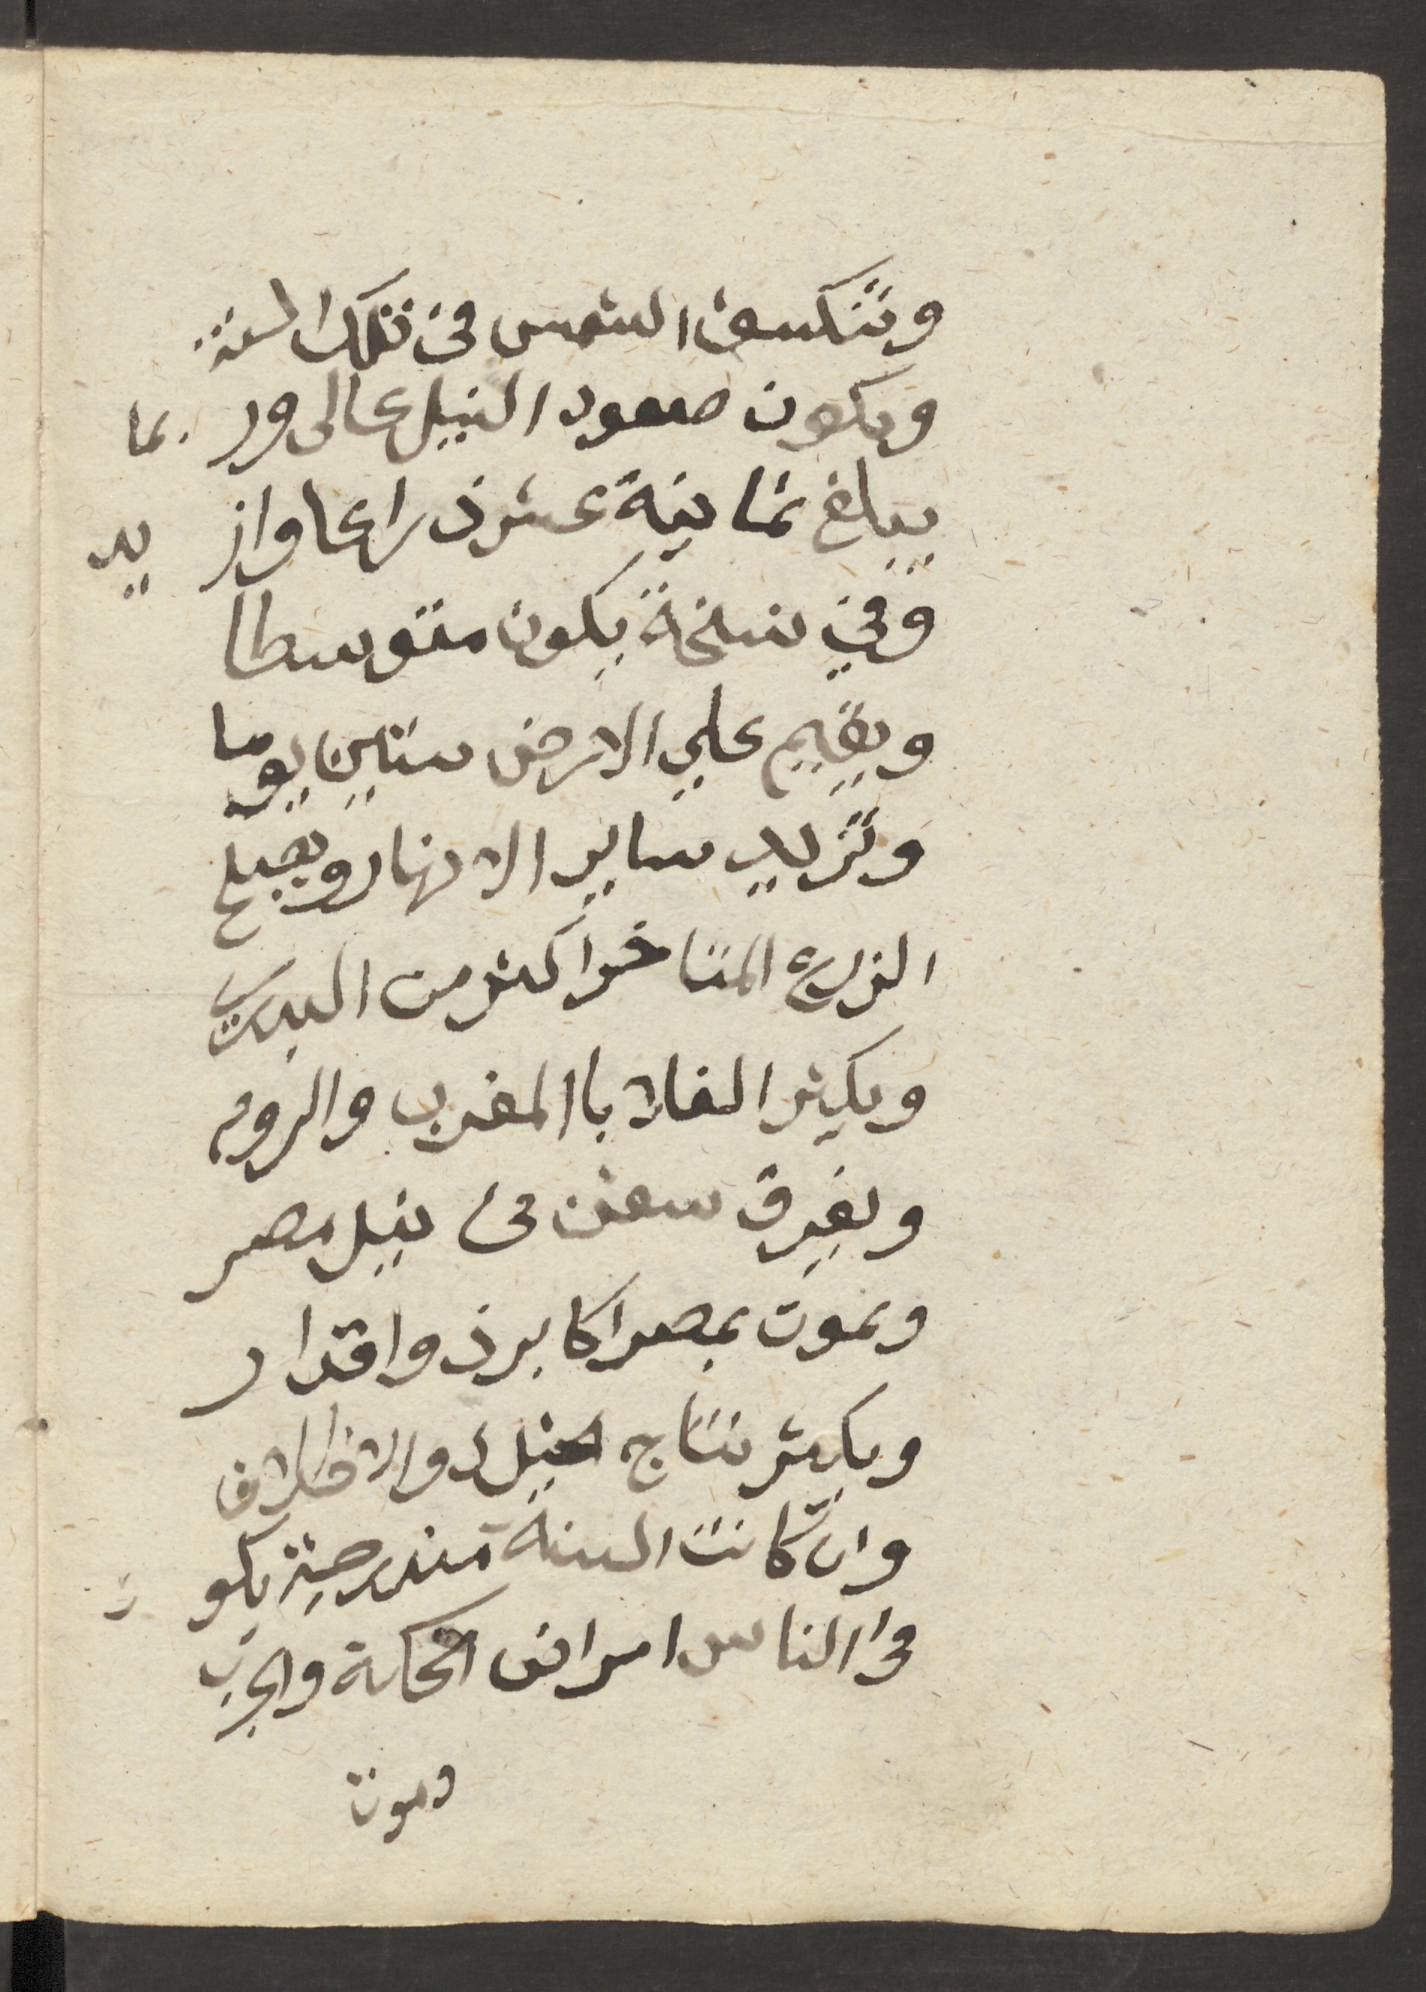 وتنكسف الشمس في تلك السنة
ويكون صعود النيل عالى ور بما
يبلغ ثمانية عشر ذراعا واز يد
وفي نسخة يكون متوسطا
ويقيم علي الارض ستين يوما
وتزيد ساير الانهار ويصلح
الزرع المتاخر اكثر من البدرى
ويكثر الغلا باالمغرب والروم
ويغرق سفن في نيل مصر
ويموت بمصر اكابر ذو اقدار
ويكثر نتاج الخيل والاظلاف
وان كانت السنة يكو ن
في الناس امراض الحكة والجرب
وموت